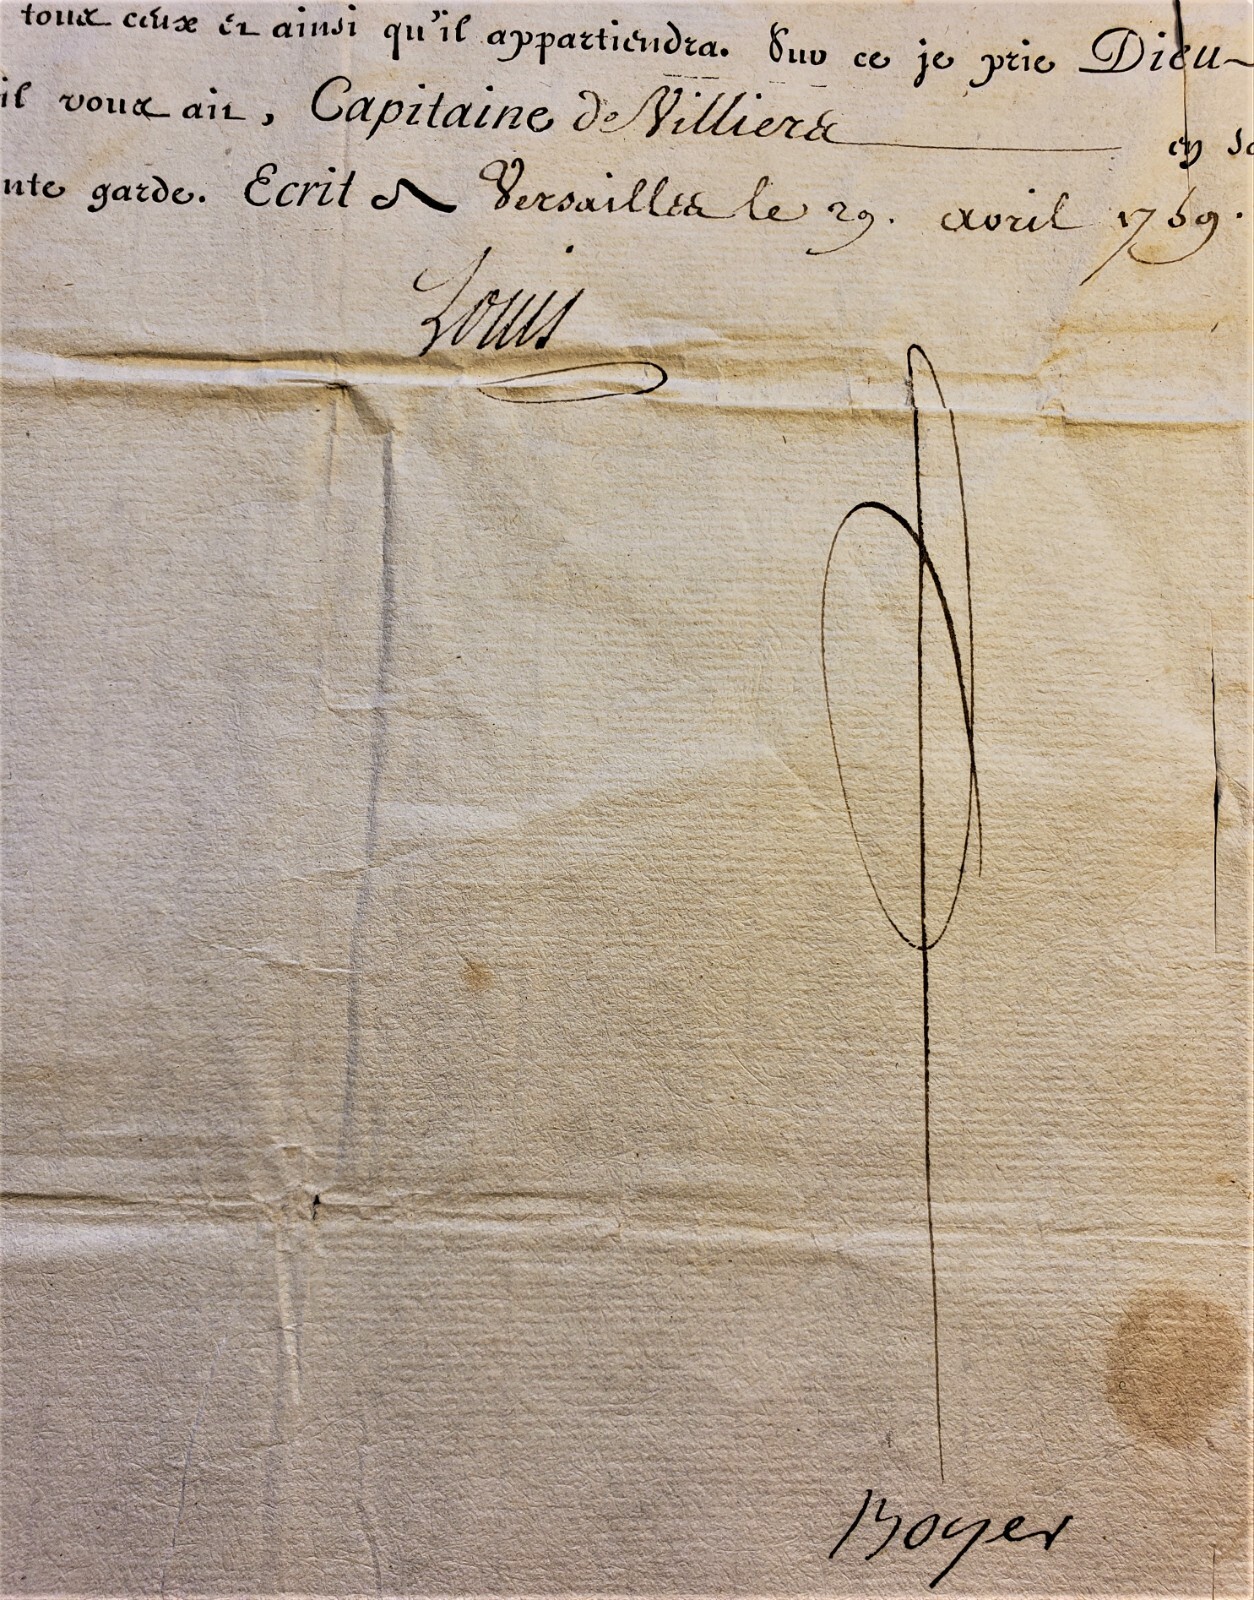 tous ceux et ainsi qu'il appartiendra. Sur ce je prie Dieu
il vous ait, Capitaine de Villiers en sa
nte garde. Ecrit à Versailles le 29. avril 1769.
Louis
Boyer